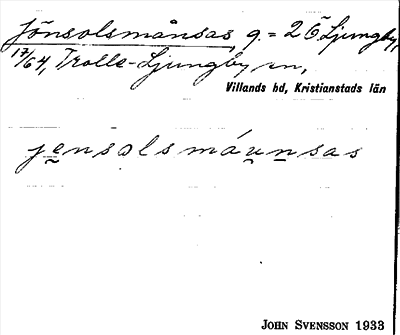 Jönsolsmånsas, g. = 2 6 Ljungby,
17/64, Trolle-Ljungby sn,
Villands hd, Kristianstads län
jensolsmáunsas
JOHN SVENSSON 1933